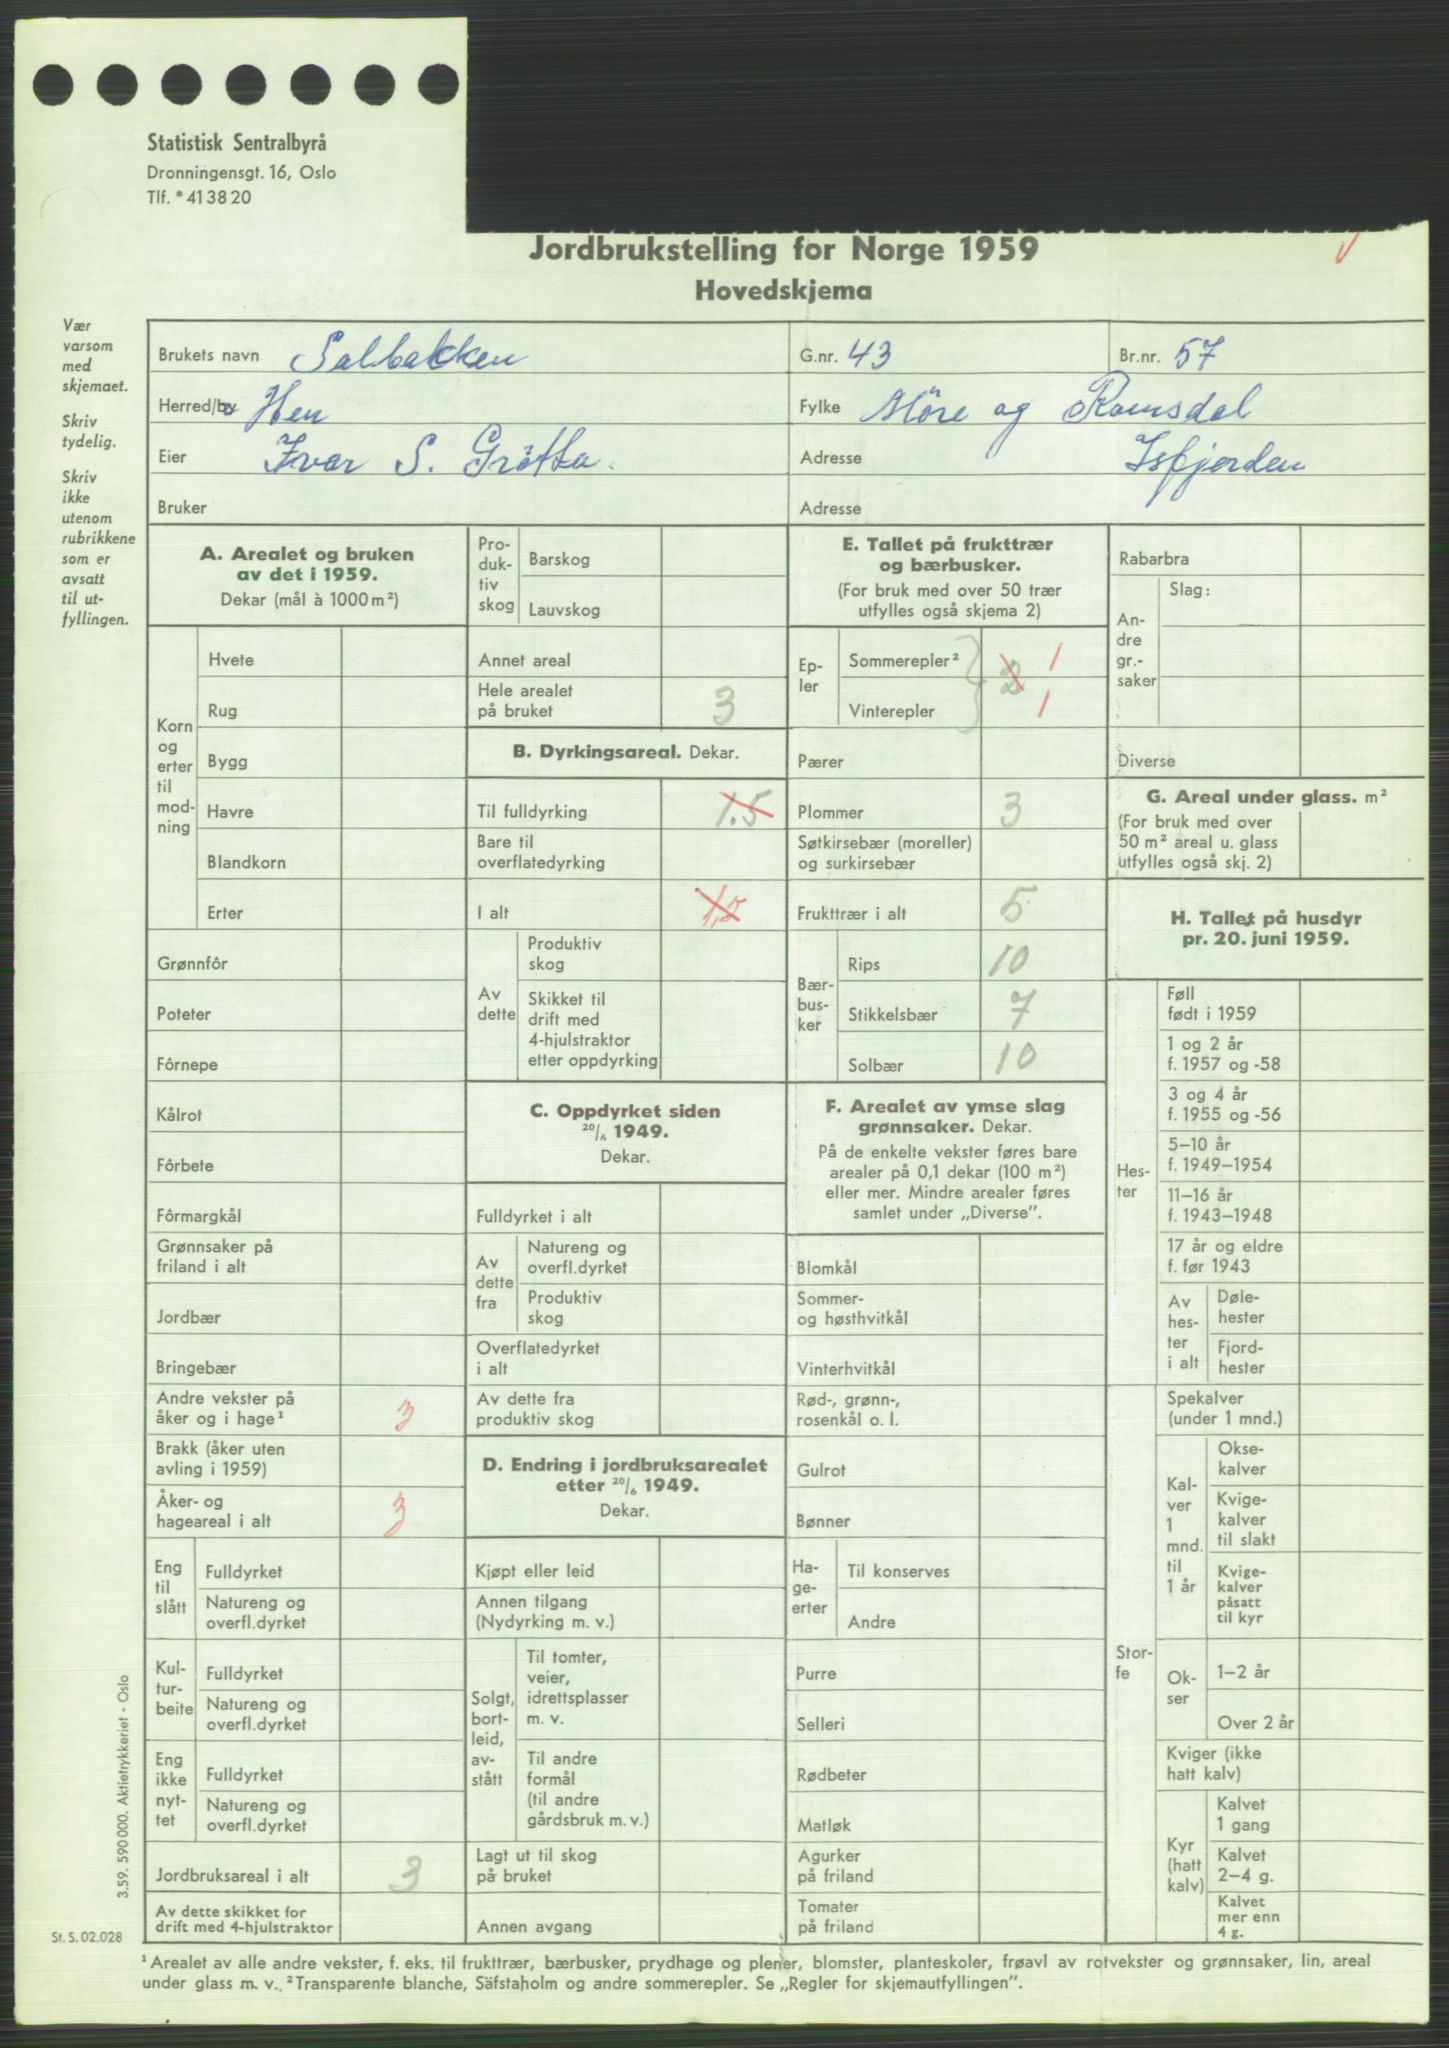 Statistisk Sentralbyrå
Dronningensgt. 16, Oslo
Tlf. * 41 38 20
Jordbrukstelling for Norge 1959
Hovedskjema
Vær
varsom
med
skjemaet.
Skriv
tydelig.
Skriv
ikke
utenom
rubrikkene
som er
avsatt
til ut-
fyllingen.
Brukets navn Solbakken G.nr. 43 Br.nr. 57
Herred/by Hen Fylke Möre og Romsdal
Eier Ivar S. Grötta. Adresse Isfjorden
Bruker Adresse
A. Arealet og bruken
av det i 1959.
Dekar (mål à 1000 m²)
Korn
og
erter
til
mod-
ning
Hvete
Rug
Bygg
Havre
Blandkorn
Erter
Grønnfôr
Poteter
Fôrnepe
Kålrot
Fôrbete
Fôrmargkål
Grønnsaker på
friland i alt
Jordbær
Bringebær
Andre vekster på
åker og i hage¹ 3
Brakk (åker uten
avling i 1959)
Åker- og
hageareal i alt 3
Eng
til
slått
Fulldyrket
Natureng og
overfl.dyrket
Kul-
tur-
beite
Fulldyrket
Natureng og
overfl.dyrket
Eng
ikke
nyt-
tet
Fulldyrket
Natureng og
overfl.dyrket
Jordbruksareal i alt 3
Av dette skikket for
drift med 4-hjulstraktor
Pro-
duk-
tiv
skog
Barskog
Lauvskog
Annet areal
Hele arealet
på bruket 3
B. Dyrkingsareal. Dekar.
Til fulldyrking 1.5
Bare til
overflatedyrking
I alt 1,5
Av
dette
Produktiv
skog
Skikket til
drift med
4-hjulstraktor
etter oppdyrking
C. Oppdyrket siden
20/6 1949.
Dekar.
Fulldyrket i alt
Av
dette
fra
Natureng og
overfl.dyrket
Produktiv
skog
Overflatedyrket
i alt
Av dette fra
produktiv skog
D. Endring i jordbruksarealet
etter 20/6 1949.
Dekar.
Kjøpt eller leid
Annen tilgang
(Nydyrking m. v.)
Solgt,
bort-
leid,
av-
stått
Til tomter,
veier,
idrettsplasser
m. v.
Til andre
formål
(til andre
gårdsbruk m. v.)
Lagt ut til skog
på bruket
Annen avgang
E. Tallet på frukttrær
og bærbusker.
(For bruk med over 50 trær
utfylles også skjema 2)
Ep-
ler
Sommerepler² 2 1
Vinterepler 1
Pærer
Plommer 3
Søtkirsebær (moreller)
og surkirsebær
Frukttrær i alt 5
Bær-
bus-
ker
Rips 10
Stikkelsbær 7
Solbær 10
F. Arealet av ymse slag
grønnsaker. Dekar.
På de enkelte vekster føres bare
arealer på 0,1 dekar (100 m²)
eller mer. Mindre arealer føres
samlet under „Diverse".
Blomkål
Sommer-
og høsthvitkål
Vinterhvitkål
Rød-, grønn-,
rosenkål o. l.
Gulrot
Bønner
Ha-
ge-
erter
Til konserves
Andre
Purre
Selleri
Rødbeter
Matløk
Agurker
på friland
Tomater
på friland
Rabarbra
An-
dre
gr.-
saker
Slag:
Diverse
G. Areal under glass. m²
(For bruk med over
50 m² areal u. glass
utfylles også skj. 2)
H. Tallet på husdyr
pr. 20. juni 1959.
Hes-
ter
Føll
født i 1959
1 og 2 år
f. 1957 og -58
3 og 4 år
f. 1955 og -56
5–10 år
f. 1949–1954
11–16 år
f. 1943–1948
17 år og eldre
f. før 1943
Av
hes-
ter
i alt
Døle-
hester
Fjord-
hester
Stor-
fe
Spekalver
(under 1 mnd.)
Kal-
ver
1
mnd.
til
1 år
Okse-
kalver
Kvige-
kalver
til slakt
Kvige-
kalver
påsatt
til kyr
Ok-
ser
1–2 år
Over 2 år
Kviger (ikke
hatt kalv)
Kyr
(hatt
kalv)
Kalvet
1 gang
Kalvet
2–4 g.
Kalvet
mer enn
4 g.
3.59. 590 000. Aktietrykkeriet - Oslo
St. S. 02.028
¹ Arealet av alle andre vekster, f. eks. til frukttrær, bærbusker, prydhage og plener, blomster, planteskoler, frøavl av rotvekster og grønnsaker, lin, areal
under glass m. v. ² Transparente blanche, Säfstaholm og andre sommerepler. Se „Regler for skjemautfyllingen".